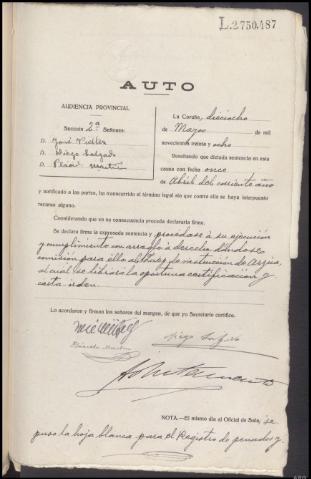 L.2750.487
AUTO
AUDIENCIA PROVINCIAL
Sección 2ª Señores:
D. José
D. Diego Salgado
D. Plácido Martín
La Coruña, dieciocho
de Mayo de mil
novecientos treinta y ocho
Resultando que dictada sentencia en esta
causa con fecha once
de Abril del corriente año
y notificada a las partes, ha transcurrido el término legal sin que contra ella se haya interpuesto
recurso alguno.
Considerando que en su consecuencia procede declararla firme.
Se declara firme la expresada sentencia y procédase a su ejecución
y cumplimiento con arreglo a derecho dándose
comisión para ello al Juez de instrucción de Arzúa,
al cual se librará la oportuna certificación y
carta orden.
Lo acordaron y firman los señores del margen, de que yo Secretario certifico.
NOTA.—El mismo día al Oficial de Sala, se
puso la hoja blanca para el Registro de penados y